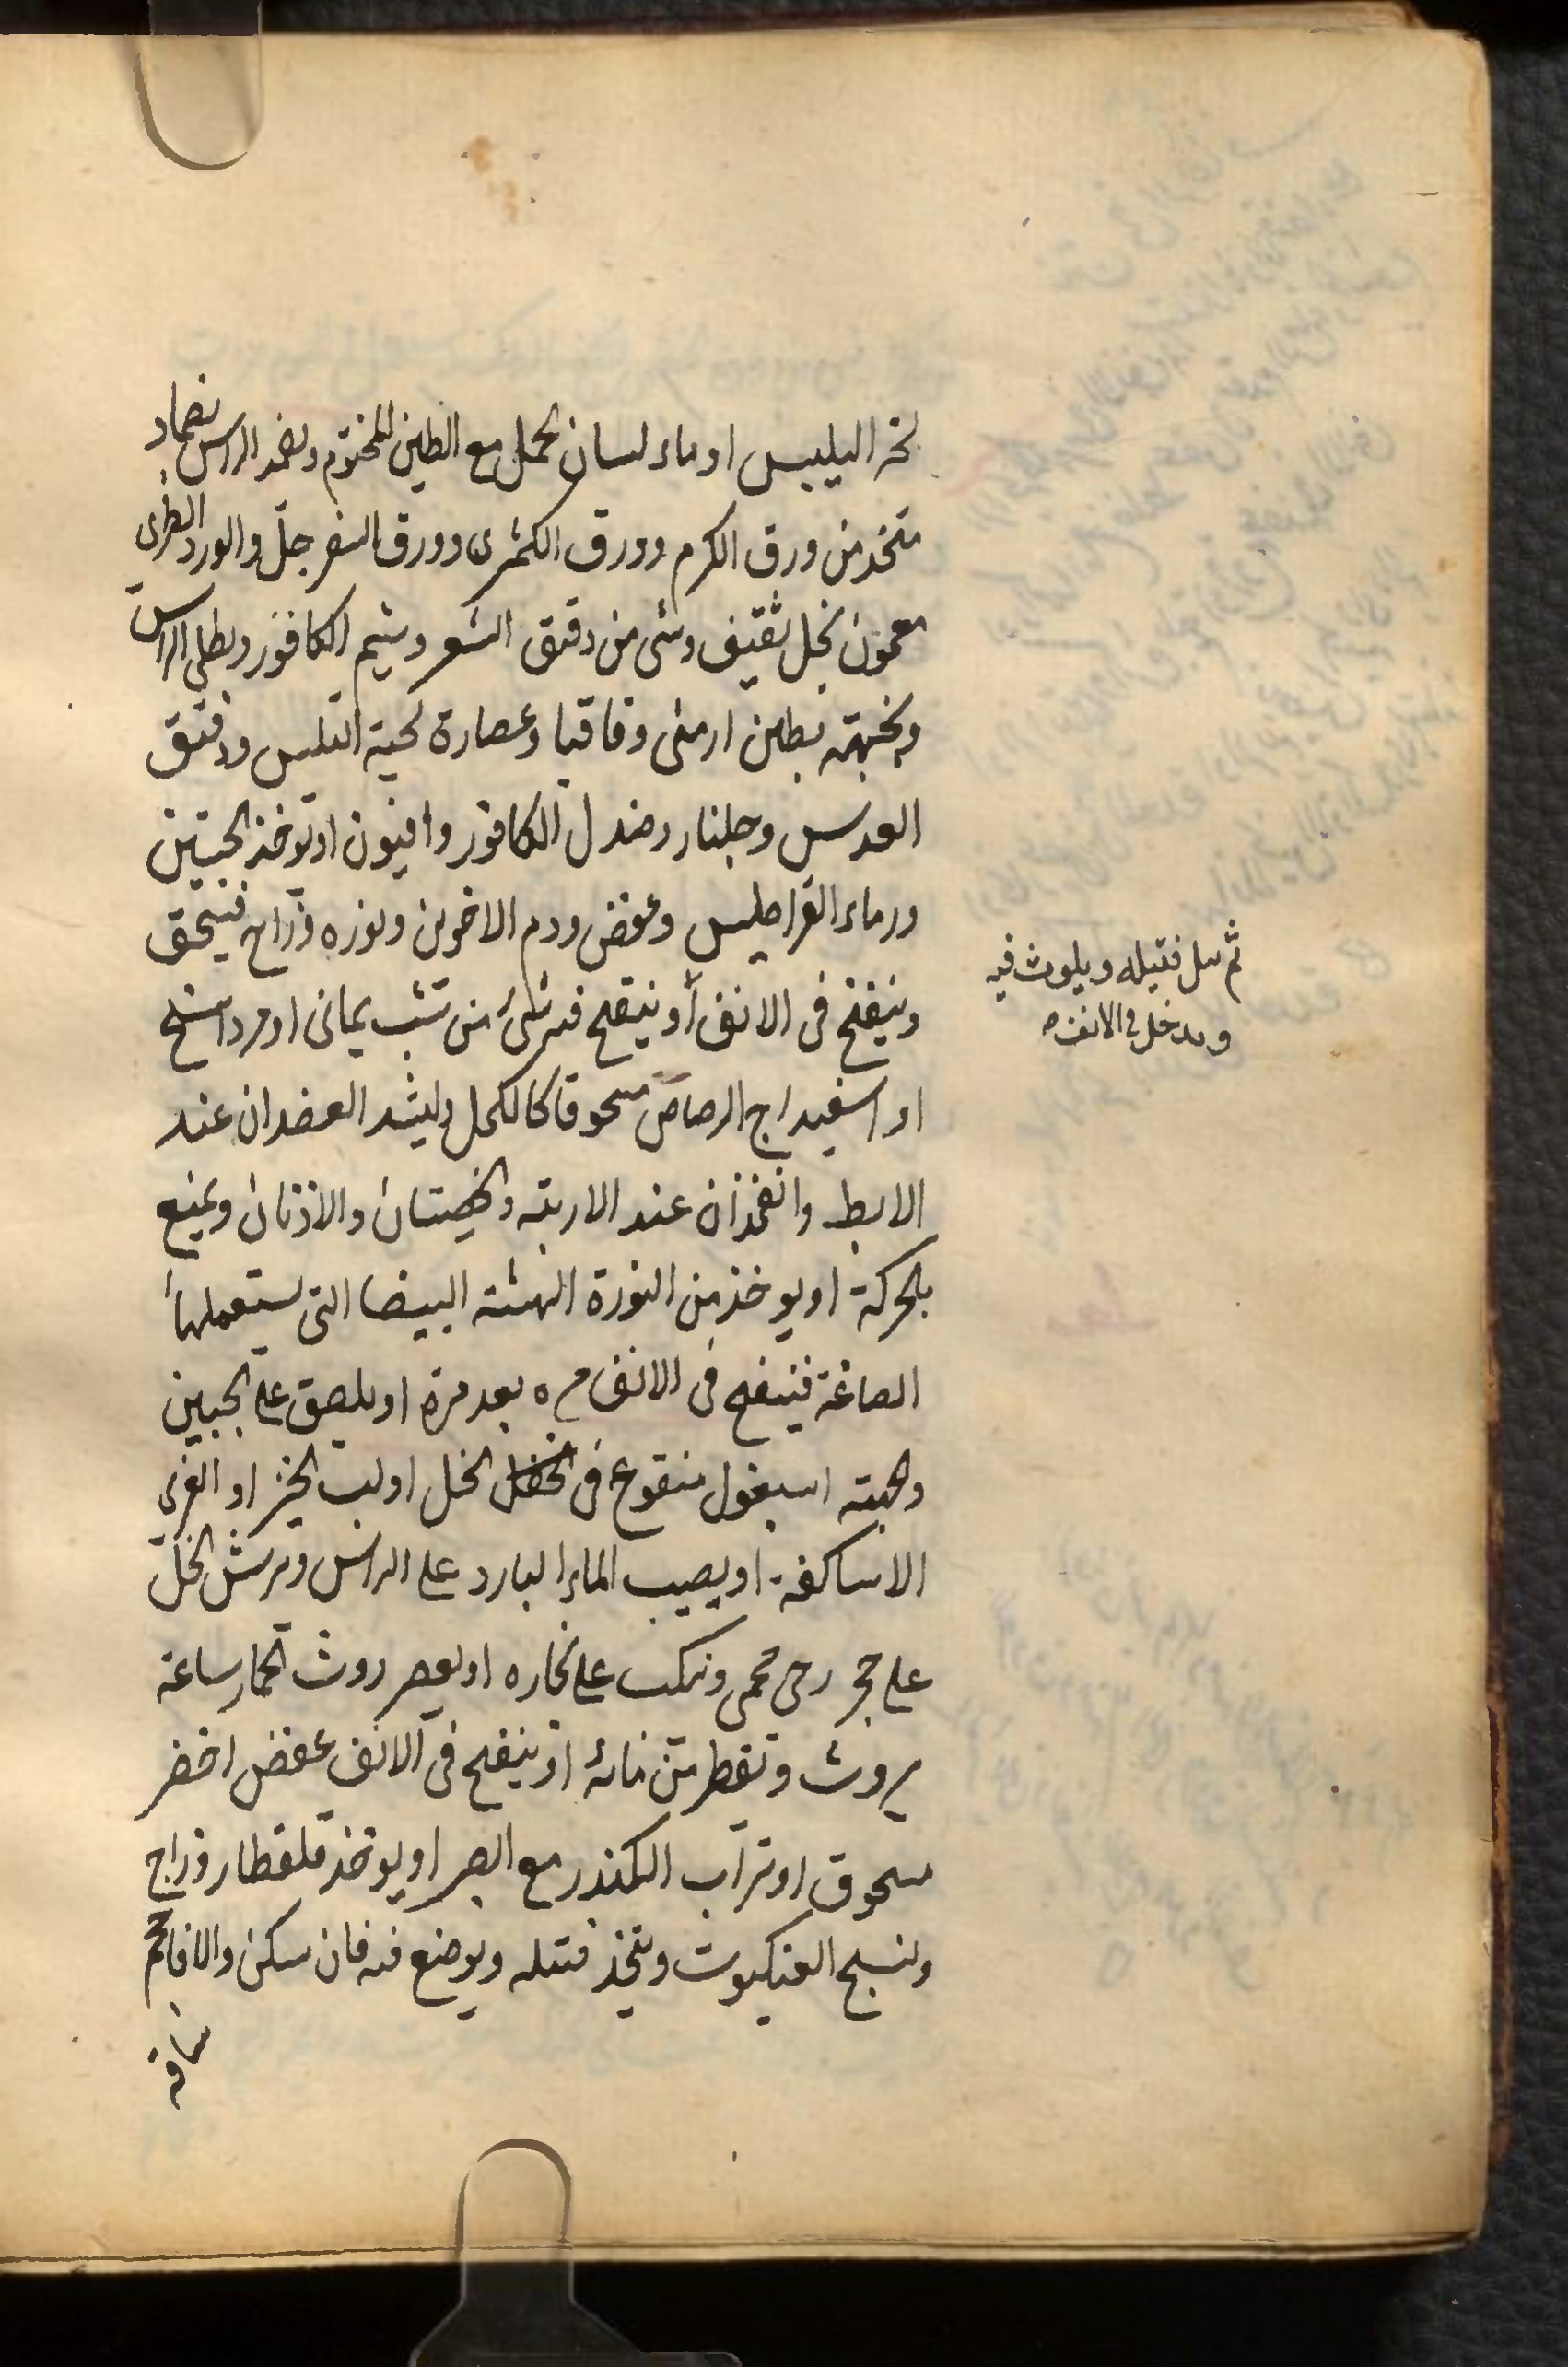 اليلبس او ماء لسان الحمل مع الطين المختوم ويضمد الراس بضماد
متخذ من ورق الكرم وورق الكمثرى وورق السفرجل والورد الطرى
معجون بخل ثقيف وشى من دقيق الشعير ويشم الكافور ويطلى الراس
والجبهة بطين ارمنى وقاقيا وعصارة لحية التيس ودقيق
العدس وجلنار وصندل الكافور وافيون او يوخذ الجبسين
ورماد القراطيس وعفص ودم الاخوين ونوره وزاج فيسحق
وينفخ فى الانف او ينفخ فيه شئ من شب يمانى او مرداسنج
او اسفيداج الرصاص مسحوقا كالكحل وليشد العضدان عند
الابط والفخذان عند الاربية والخصيتان والاذنان ويمنع
بالحركة او يوخذ من النورة الهشة البيضا التى يستعملها
الصاغة فينفخ فى الانف مره بعد مرة او يلصق على الجبين
والجبهة اسبغول منقوع فى الخل او لب الخبز او الغرى
الاساكفة او يصب الماء البارد على الراس ويرش الخل
على حجر رحى محمى ويكب على بخاره او يعصر روث الحمار ساعة
يروث ويقطر من مائه او ينفخ فى الانف عفص اخضر
مسحوق او تراب الكندر مع الصبر او يوخذ قلقطار وزاج
ونسج العنكبوت ويتخذ فتيله ويوضع فيه فان سكن والا فاحجم
ساقه
ثم بل فتيله ويلوث فيه
ويدخل فى الانف